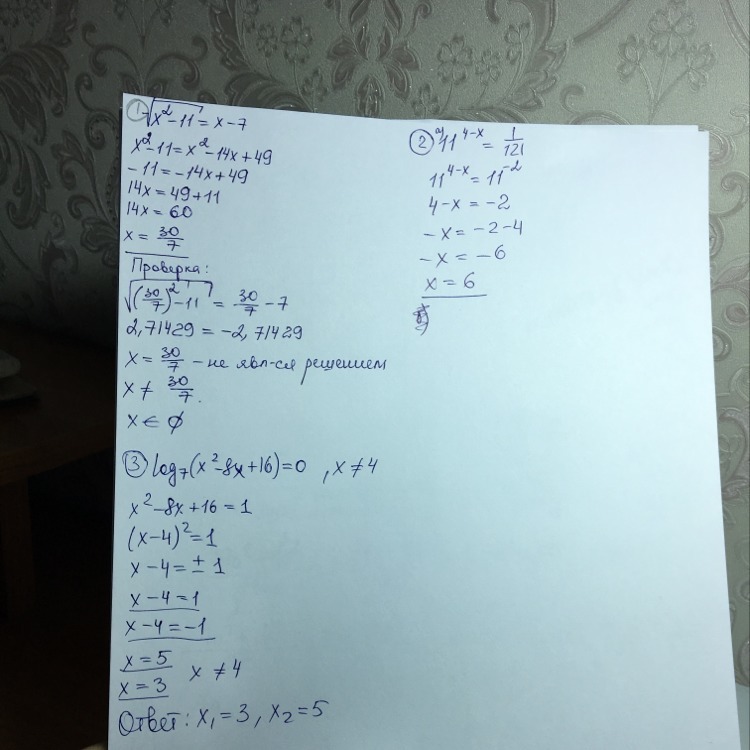 ① √(x²-11) = x-7
x²-11 = x²-14x+49
-11 = -14x+49
14x = 49+11
14x = 60
x = 30/7
Проверка:
√((30/7)²-11) = 30/7 - 7
2,71429 = -2,71429
x = 30/7 - не явл-ся решением
x ≠ 30/7.
x ∈ ∅
② а) 11^(4-x) = 1/121
11^(4-x) = 11^(-2)
4-x = -2
-x = -2-4
-x = -6
x = 6
③ log₇(x²-8x+16)=0 , x≠4
x²-8x+16 = 1
(x-4)² = 1
x-4 = ±1
x-4 = 1
x-4 = -1
x = 5
x ≠ 4
x = 3
Ответ: x₁=3, x₂=5